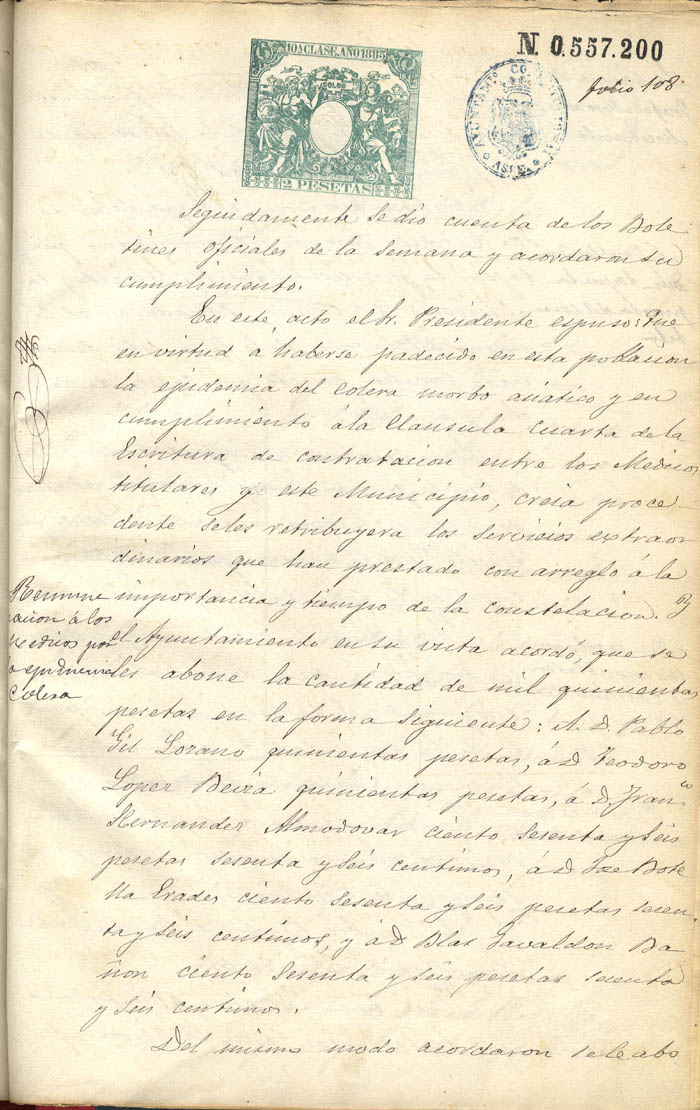 10A CLASE. AÑO 1885
2 PESETAS
N. 0.557.200
AYUNTAMTO CO
ASPE.
folio 108
Seguidamente se dio cuenta de los Bole-
tines oficiales de la semana y acordaron su
cumplimiento.
En este acto el Sr. Presidente espuso: Que
en virtud a haberse padecido en esta poblacion
la epidemia del colera morbo asiatico y en
cumplimiento á la Clausula Cuarta de la
Escritura de contratacion entre los Medicos
titulares y este Municipio, creia proce-
dente se les retribuyera los servicios extraor
dinarios que han prestado con arreglo á la
importancia y tiempo de la constelacion. Y
el Ayuntamiento en su vista acordó, que se
les abone la cantidad de mil quinientas
pesetas en la forma siguiente: A D. Pablo
Gil Lozano quinientas pesetas, á D Teodoro
Lopez Beiza quinientas pesetas, á D. Franco
Hernandez Almodovar ciento sesenta y seis
pesetas sesenta y seis centimos, á D Jose Bote
lla Erades ciento sesenta y seis pesetas sesen
ta y seis centimos, y á D Blas Gavaldon Ba
ñon ciento sesenta y seis pesetas sesenta
y seis centimos.
Del mismo modo acordaron se le abo
Remune
racion á los
Medicos por
la epidemia
Colera